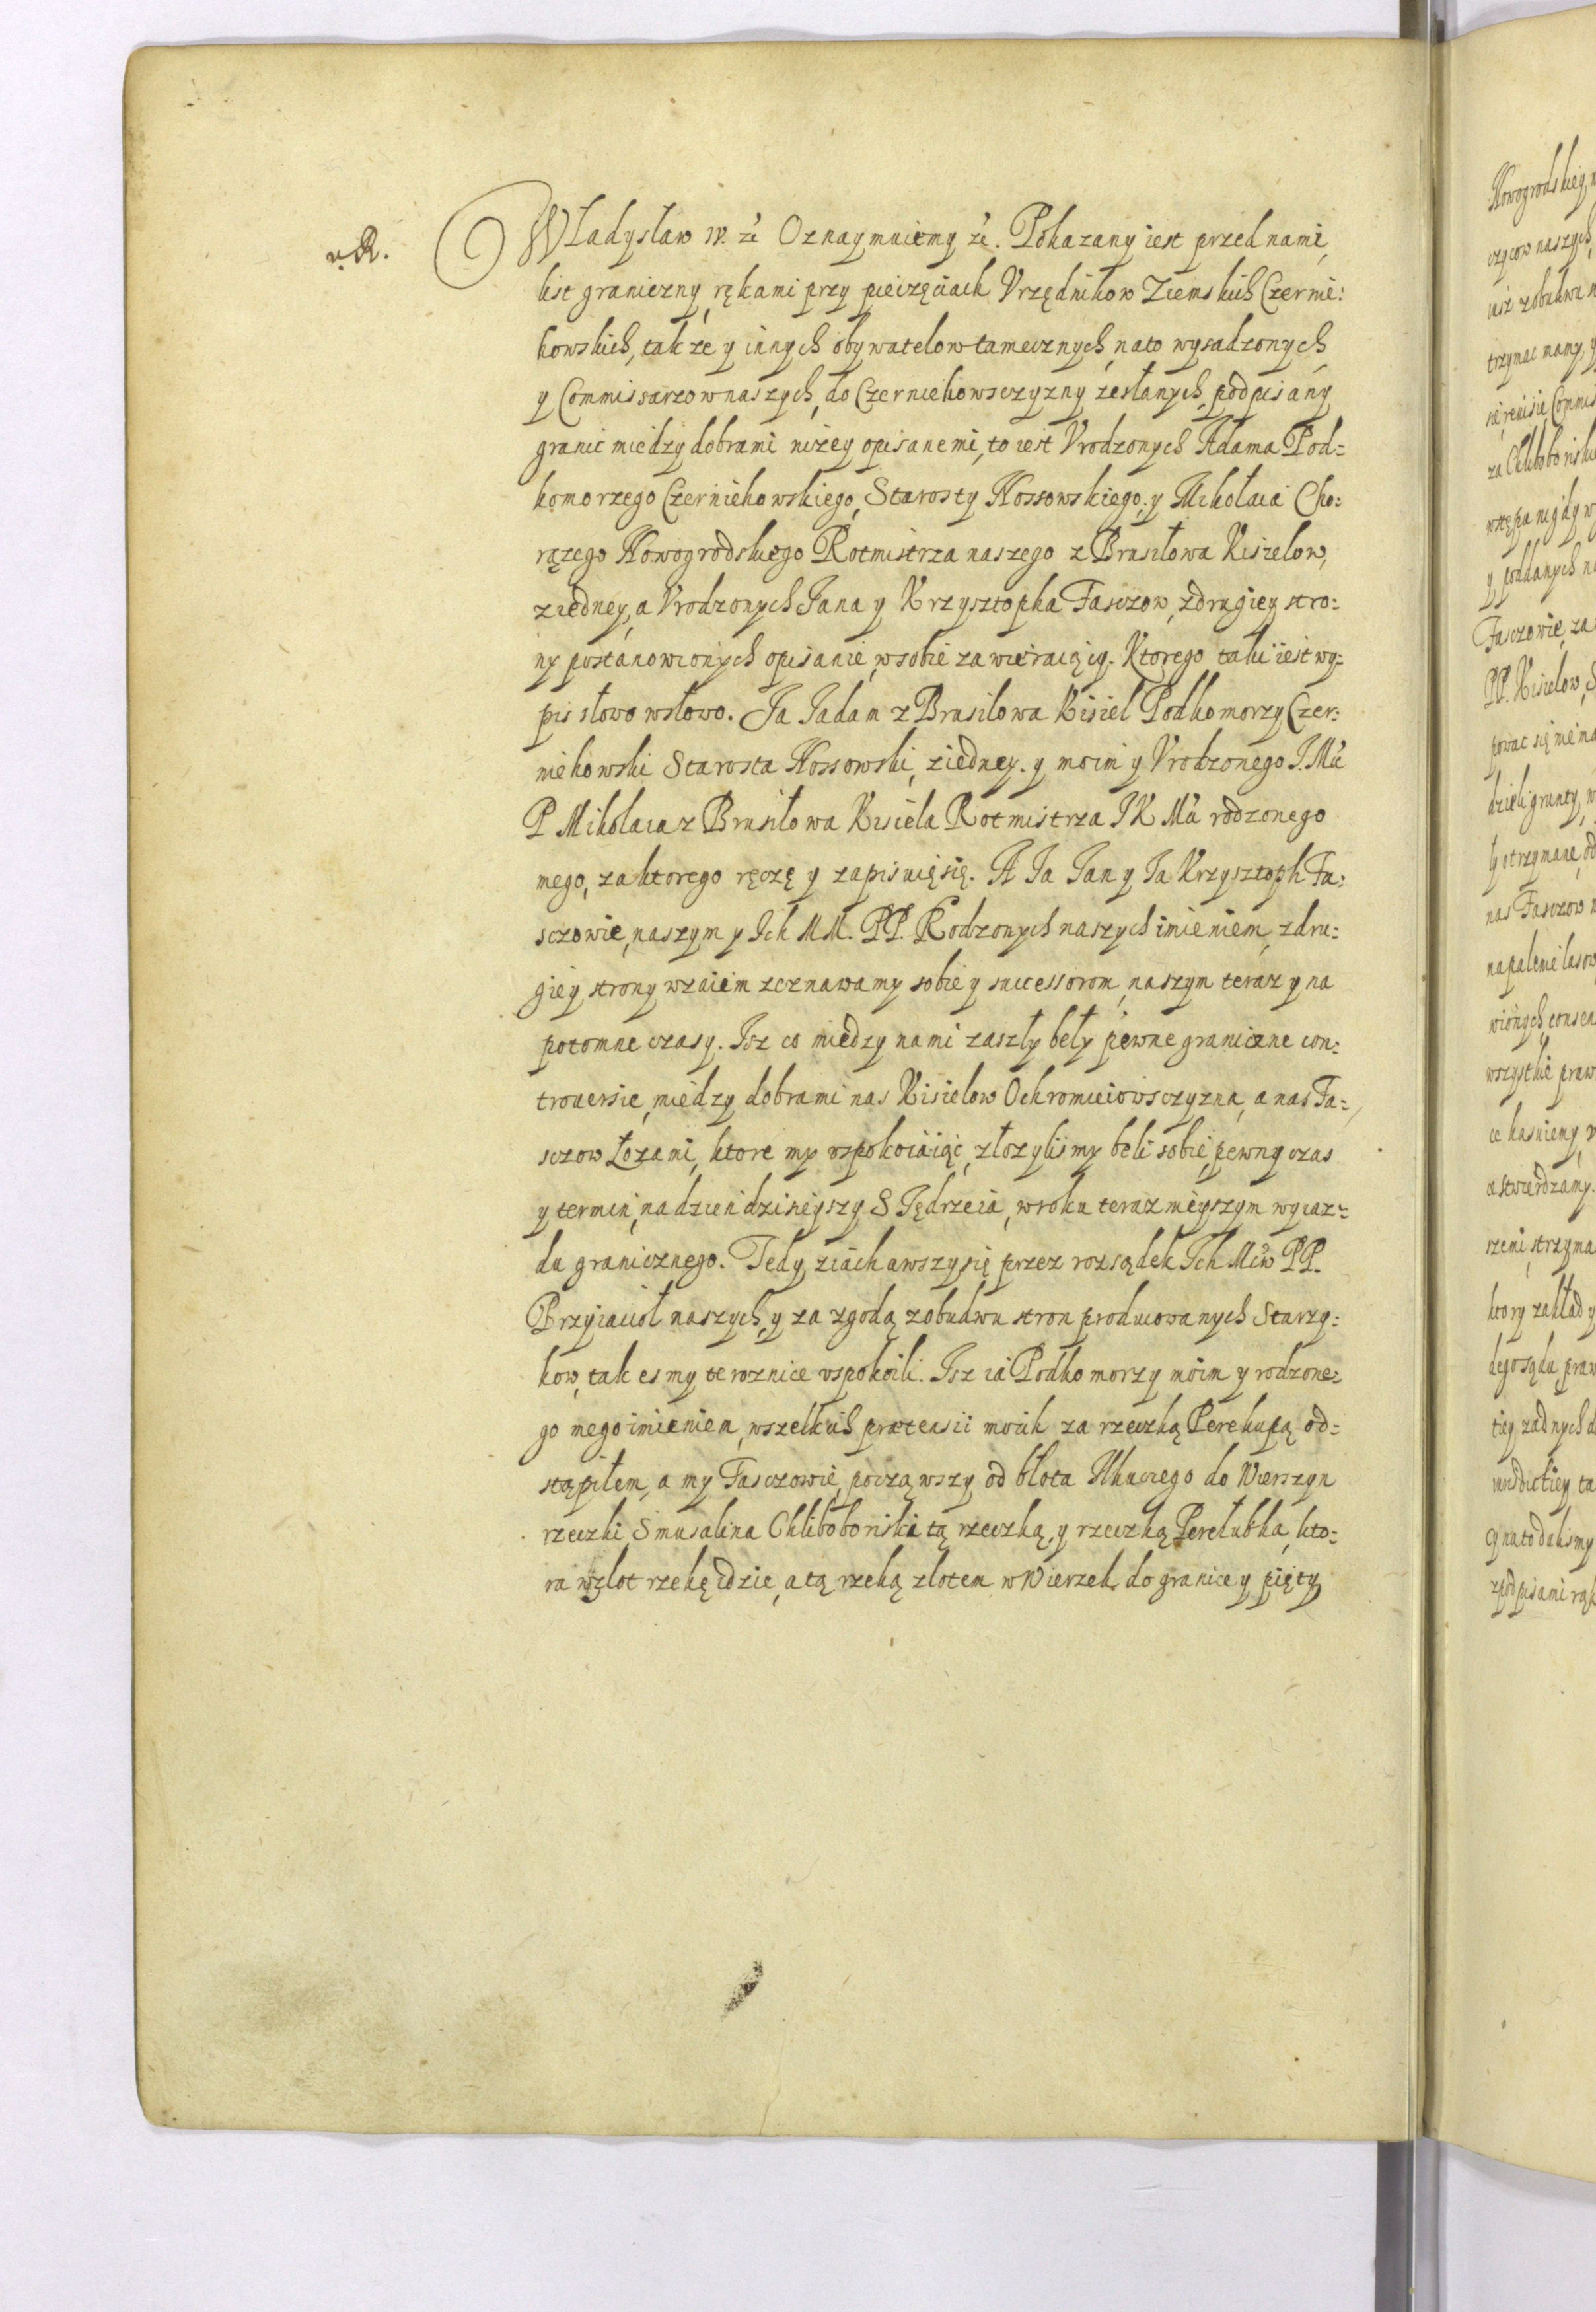 v. R.
Władysław IV. &c Oznaymuiemy &c. Pokazany iest przed nami,
list graniczny, rękami przy pieczęciach Vrzędnikow Ziemskich Czernie:
howskich, także y innych obywatelow tamecznych, na to wysadzonych,
y Commissarzow naszych, do Czerniehowsczyzny zesłanych, podpisany
granic miedzy dobrami niżey opisanemi, to iest Vrodzonych Adama Pod:
komorzego Czerniehowskiego, Starosty Nossowskiego, y Mikołaia Cho:
rążego Nowogrodskiego Rotmistrza naszego z Brusiłowa Kisielow,
z iedney, a Vrodzonych Jana y Krzysztopha Fasczow, z drugiey stro:
ny postanowionych opisanie, w sobie zawieraiący. Ktorego taki iest wy:
pis słowo w słowo. Ja Jadam z Brusiłowa Kisiel Podkomorzy Czer:
niehowski Starosta Nossowski, z iedney. y moim y Vrodzonego J. Mći
P Mikołaia z Brusiłowa Kisiela Rotmistrza J K Mći rodzonego
mego, za ktorego ręczę y zapisuię się. A Ja Jan y Ja Krzysztoph Fa:
sczowie, naszym y Ich MM. PP. Rodzonych naszych imieniem, z dru:
giey strony wzaiem zeznawamy sobie y successorom, naszym teraz y na
potomne czasy. Isz co miedzy nami zaszły beły pewne graniczne con:
trouersie, miedzy dobrami nas Kisielow Ochromieiowsczyzną, a nas Fa:
sczow Łozami, ktore my vspokoiaiąc, złozylismy beli sobie, pewny czas
y termin, na dzien dzisieyszy S Jędrzeia, w roku teraznieyszym wyiaz:
du granicznego. Tedy ziachawszy się przez rozsądek Ich Mćiow PP.
Przyiacioł naszych, y za zgodą z obudwu stron producowanych Starzy:
kow, tak esmy te roznice vspokoili. Isz ia Podkomorzy moim y rodzone:
go mego imieniem, wszelkich prætensii moich za rzeczką Perekupą od:
stąpiłem, a my Fasczowie, począwszy od błota do Wierszyn
rzeczki Smusalina Chliboboriski tą rzeczką, y rzeczką Perełubką, kto:
ra wzlot rzekę idzie, a tą rzeką zlotem w Wierzch do granice y pięty